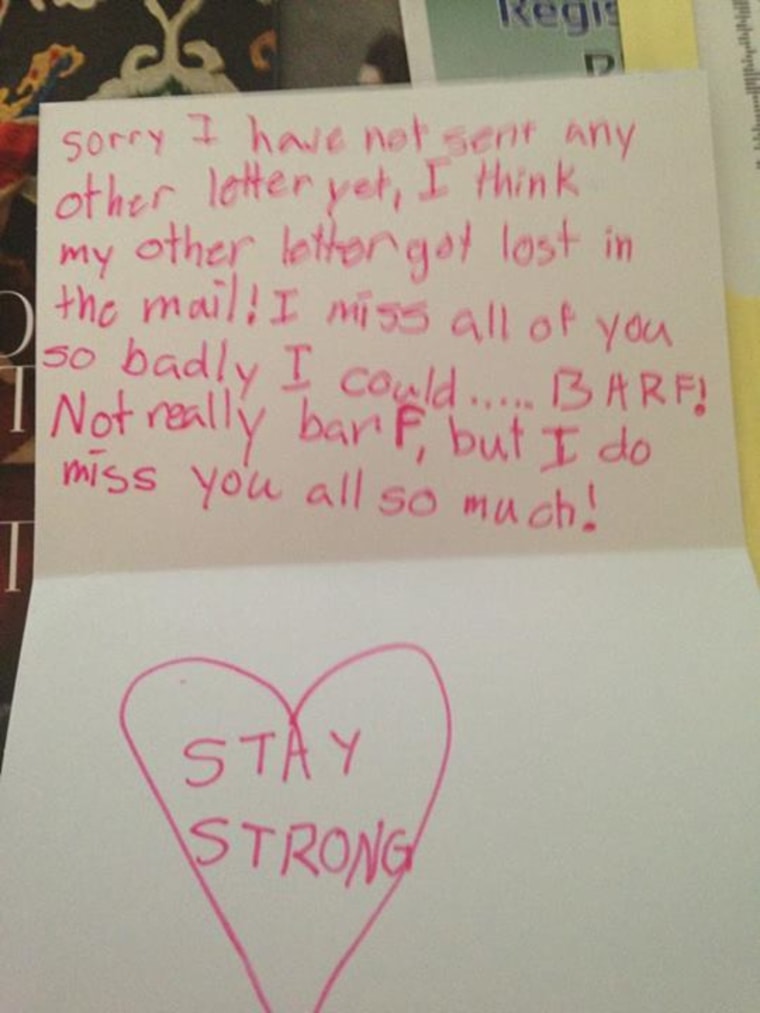 Regis
sorry I have not sent any
other letter yet, I think
my other letter got lost in
the mail! I miss all of you
so badly I could..... BARF!
Not really barf, but I do
miss you all so much!
STAY
STRONG